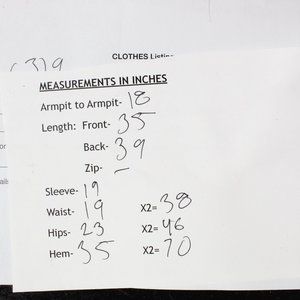 CLOTHES
319
MEASUREMENTS IN INCHES
Armpit to Armpit- 18
Length: Front- 35
Back- 39
Zip- -
Sleeve- 19
Waist- 19 X2= 38
Hips- 23 X2= 46
Hem- 35 X2= 70